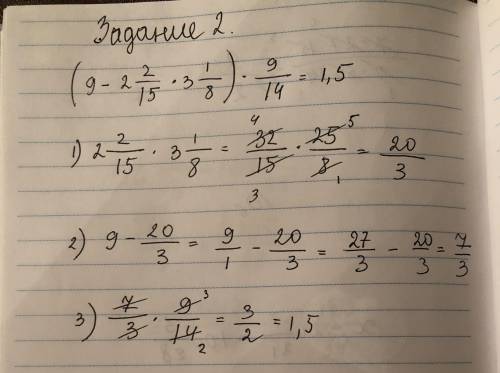 Задание 2.
(9 - 2 2/15 · 3 1/8) · 9/14 = 1,5
1) 2 2/15 · 3 1/8 = 32/15 · 25/8 = 20/3
4 5 3 1
2) 9 - 20/3 = 9/1 - 20/3 = 27/3 - 20/3 = 7/3
3) 7/3 · 9/14 = 3/2 = 1,5
3 2